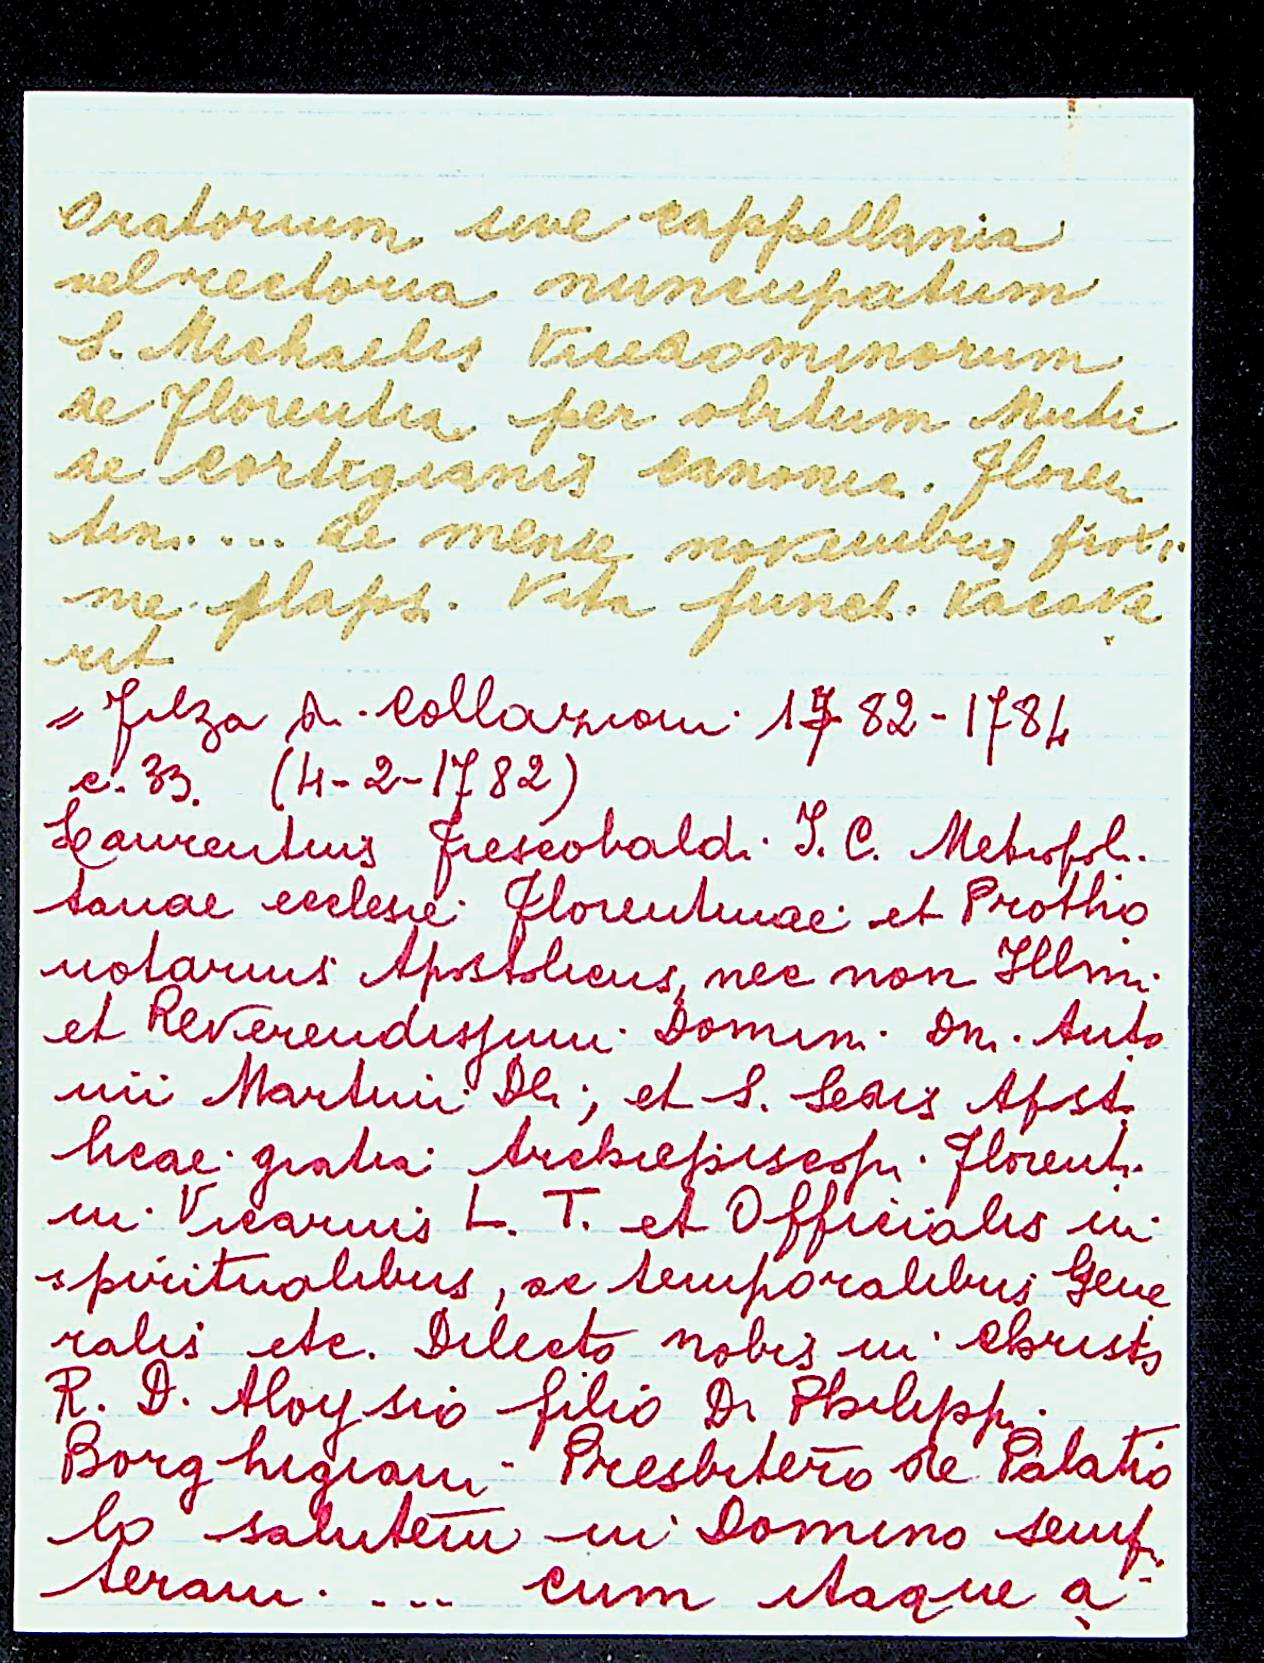 Oratorium sive cappellania
vel rectoria nuncupatum
S. Michaelis Vicedominorum
de Florentia per obitum Mutii
de Cortigianis canonic. Floren
tin. .... de mense novembris proxi
me elaps. Vita funct. Vacave
rit
= Filza di Collazioni 1782-1784
c. 33. (4-2-1782)
Laurentius Frescobaldi I. C. Metropoli
tanae ecclesie Florentinae et Protho
notarius Apostolicus, nec non Illmi.
et Reverendissimi Domin. Dn. Anto
nii Martini Dei; et S. Sedis Aposto
licae gratia Archiepiscopi Florenti
ni Vicarius L. T. et Officialis in
spiritualibus, ac temporalibus Gene
ralis etc. Dilecto nobis in Christo
R. D. Aloysio filio D. Philippi
Borghigiani Presbitero de Palatio
lo salutem in Domino semp
teram .... cum itaque a